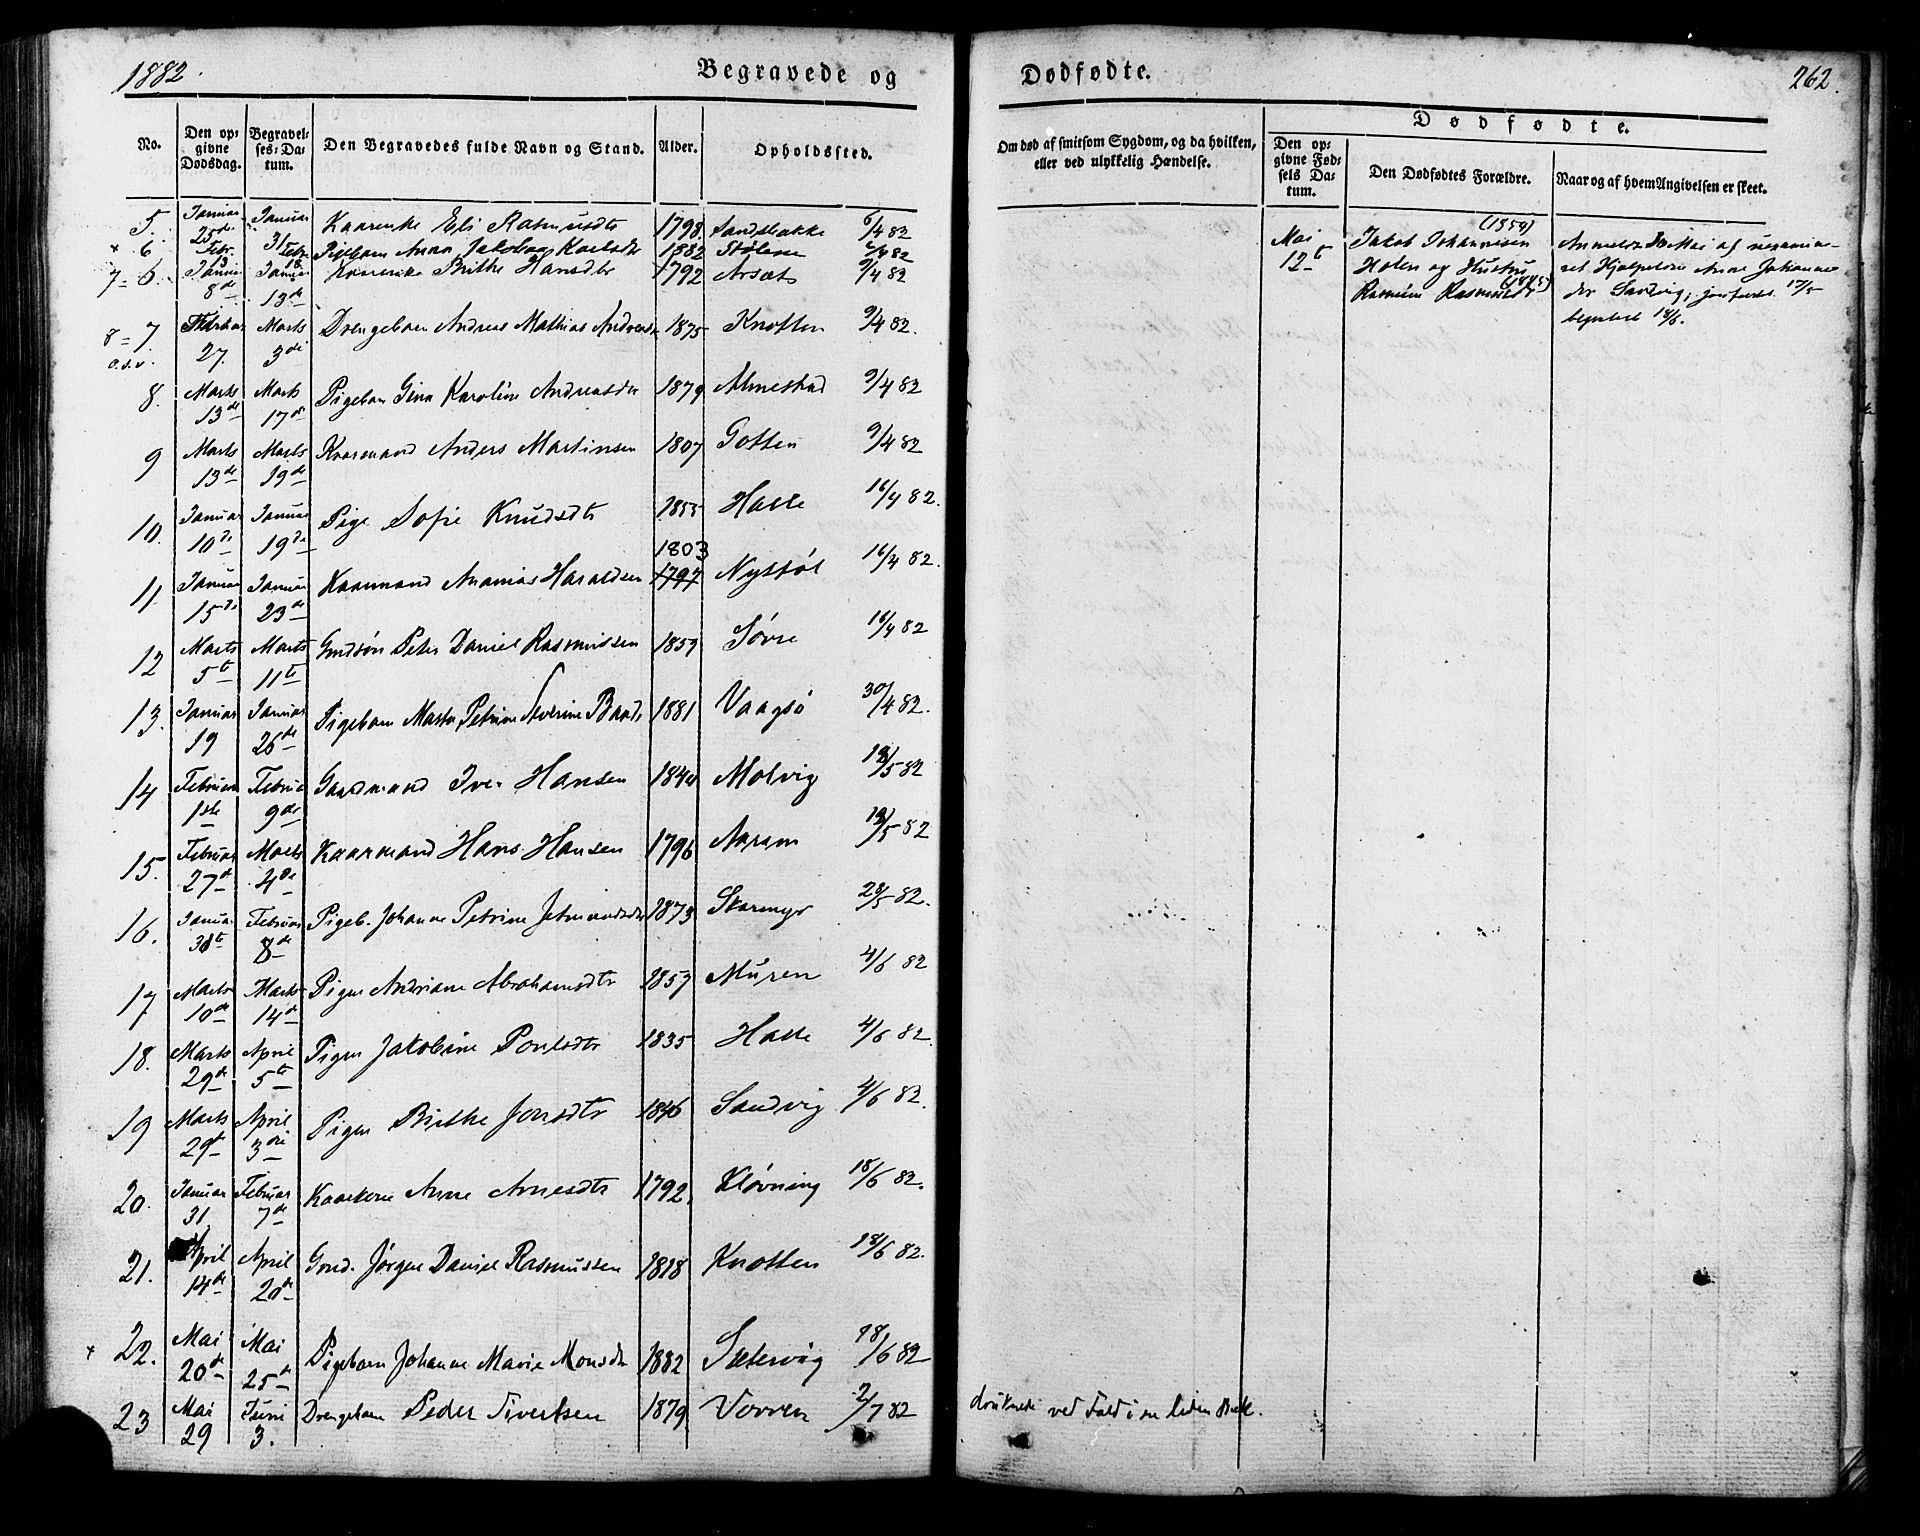 1882.
Begravede og
Dødfødte.
262.
No.
Den op-
givne
Dødsdag.
Begravel-
ses-Da-
tum.
Den Begravedes fulde Navn og Stand.
Alder.
Opholdssted.
Om død af smitsom Sygdom, og da hvilken,
eller ved ulykkelig Hændelse.
Dødfødte.
Den op-
givne Fød-
sels Da-
tum.
Den Dødfødtes Forældre.
Naar og af hvem Angivelsen er skeet.
5. Januar 25de Januar 31 Kaarenke Eli Rasmusdtr 1798 Sandsbakke 6/4 82
6 Febr. 13 Febr 18 Pigebarn Anna Jakobaa Karlsdtr 1882 Stølene 2/4 82
7=6. Januar 8de Januar 13de Kaarenke Brithe Hansdtr 1792 Arsæt 9/4 82
8=7 Februar 27. Marts 3di Drengebarn Andreas Mathias Andreas 1875 Knotten 9/4 82.
o.s.v.
8. Marts 13de Marts 17de Pigebarn Gina Karoline Andreasdtr 1879 Almestad 9/4 82
9 Marts 13de Marts 19de Kaarmand Anders Martinsen 1807 Gotten 9/4 82
10. Januar 10de Januar 19de Pige Sofie Knudsdtr 1855 Halle 16/4 82.
1803
11. Januar 15de Januar 23de Kaarmand Ananias Haraldsen 1797 Nystøl 16/4 82.
12 Marts 5te Marts 11te Gmdsøn Peter Daniel Rasmussen 1859 Søvre 16/4 82
13. Januar 19 Januar 26de Pigebarn Marta Petrine Severine Baards 1881 Vaagsø 30/4 82.
14 Februar 1ste Februar 9de Gaardmand Iver Hansen 1840 Molvig 18/5 82
15. Februar 27de Marts 4de Kaarmand Hans Hansen 1796 Aaram 18/5 82
16. Januar 30te Februar 8de Pigeb. Johanne Petrine Jetmundsdtr 1873 Skoremyr 28/5 82.
17 Marts 10de Marts 14de Pigen Andriane Abrahamsdtr 1857 Muren 4/6 82
18. Marts 29de April 5te Pigen Jakobine Poulsdtr 1835 Halle 4/6 82.
19 Marts 29de April 3die Pigen Brithe Jonsdtr 1846 Sandvig 4/6 82.
20. Januar 31. Februar 7de Kaarkone Anne Arnesdtr 1792. Kløvning 18/6 82.
21. April 14de April 20de Gmd. Jørgen Daniel Rasmussen 1818 Knotten 18/6 82.
22. Mai 20de Mai 25de Pigebarn Johanne Marie Monsdtr 1882 Sætervig 18/6 82
23 Mai 29 Juni 3. Drengebarn Peder Sivertsen 1879 Vorren 2/7 82
druknede ved Fald i en liden Bæk.
Mai
12te
(1859)
Jakob Johannesen
Holen og Hustru
Rasmine Rasmusdtr
Anmeldt Mai af uexamine-
ret Hjælpekone Anne Johanne
dtr Sandvig; jordfæstet 17/5
begravet 18/6.